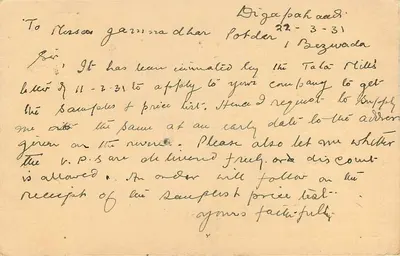 Digapahandi
22-3-31
To Messrs Jamnadhar Potdar
, Bezwada
Sir,
It has been intimated by the Tata Mills
letter of 11-2-31 to apply to your company to get
the samples & price list. Hence I request to supply
me the same at an early date to the address
given on the reverse. Please also let me whether
the V.P.s are delivered freely or a discount
is allowed. An order will follow on the
receipt of the samples & price list.
yours faithfully